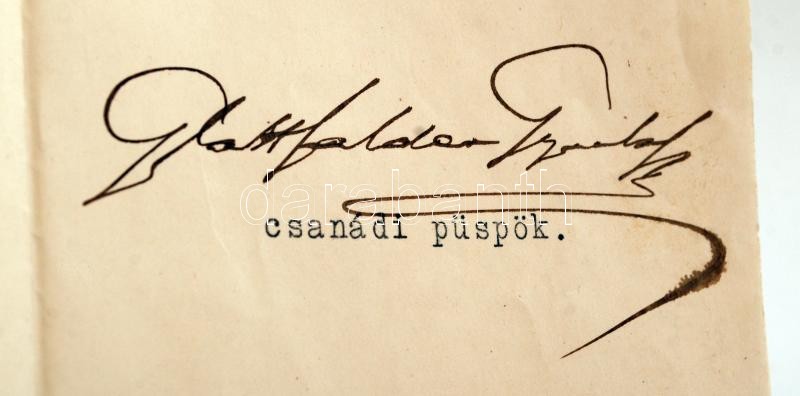 Glattfelder Gyula
darabanth
csanádi püspök.